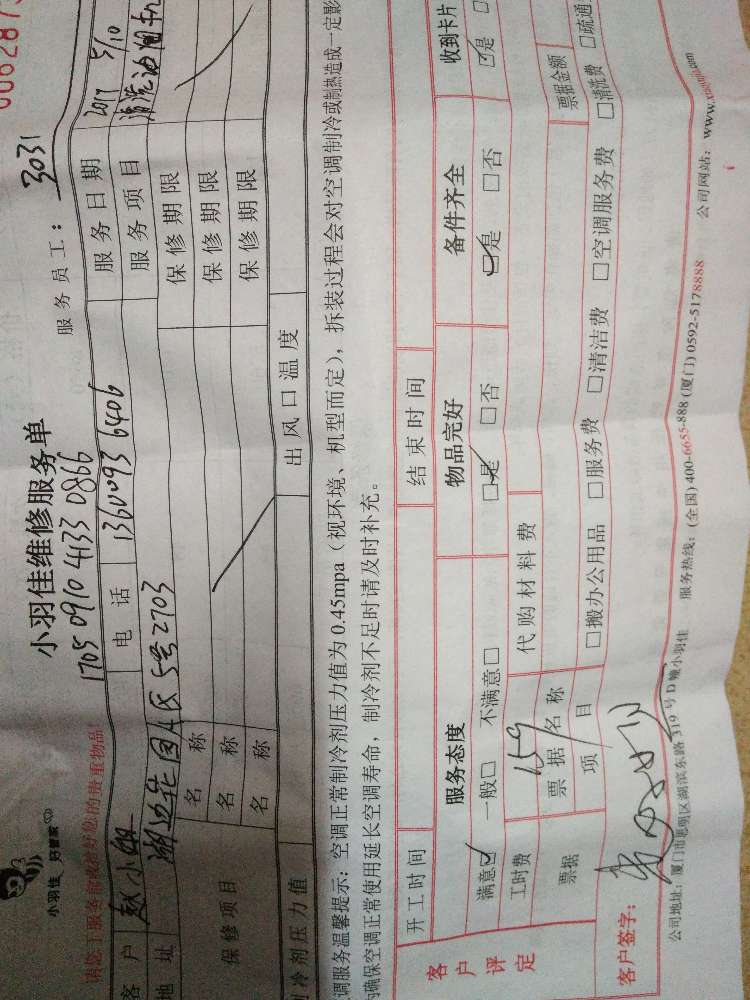 小羽佳 好管家
小羽佳维修服务单
1705 0910 4133 0866
服务员工：3031
客户 赵小姐 电话 13600936406 服务日期 2017 5/10
地址 湖边花园A区5号2703 服务项目 清洗油烟机
保修项目 名称 保修期限
名称 保修期限
名称 保修期限
制冷剂压力值 出风口温度
调服务温馨提示：空调正常制冷剂压力值为0.45mpa（视环境、机型而定），拆装过程会对空调制冷或制热造成一定影
确保空调正常使用延长空调寿命，制冷剂不足时请及时补充。
客户评定 开工时间 结束时间
服务态度 物品完好 备件齐全 收到卡片
满意☑ 一般□ 不满意□ ☑是 □否 ☑是 □否 ☑是
工时费 159 代购材料费 票据金额
票据 票据名称
项目 □搬办公用品 □服务费 □清洁费 □空调服务费 □清洗费 □疏通
客户签字：
公司地址：厦门市思明区湖滨东路319号D幢小羽佳 服务热线：(全国)400-6655-888 (厦门)0592-5178888 公司网站：www.